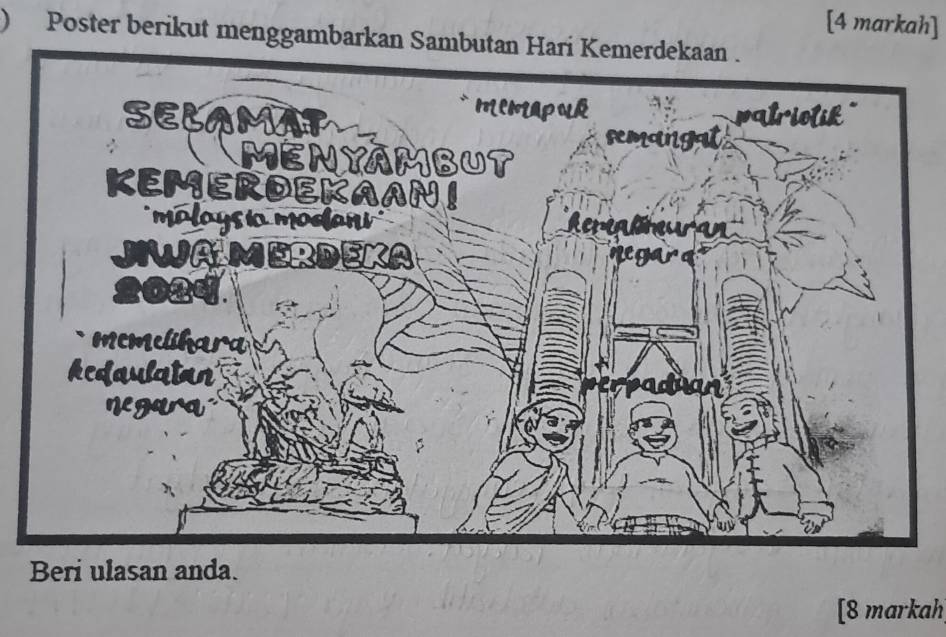 [4 markah]
) Poster berikut menggambarkan Sambutan Hari Kemerdekaan .
SELAMAT
MENYAMBUT
KEMERDEKAAN!
"malaysia madani"
JIWA MERDEKA
2024.
"memelihara
kedaulatan
negara"
"memapuk
semangat
patriotik"
kemakmuran
negara"
perpaduan"
Beri ulasan anda.
[8 markah